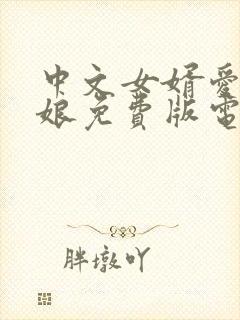 中文女婿爱
娘免费版电
胖墩吖